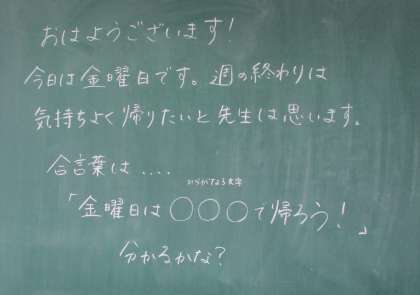 おはようございます!
今日は金曜日です。週の終わりは
気持ちよく帰りたいと先生は思います。
合言葉は....
ひらがな3文字
「金曜日は〇〇〇で帰ろう!」
分かるかな?